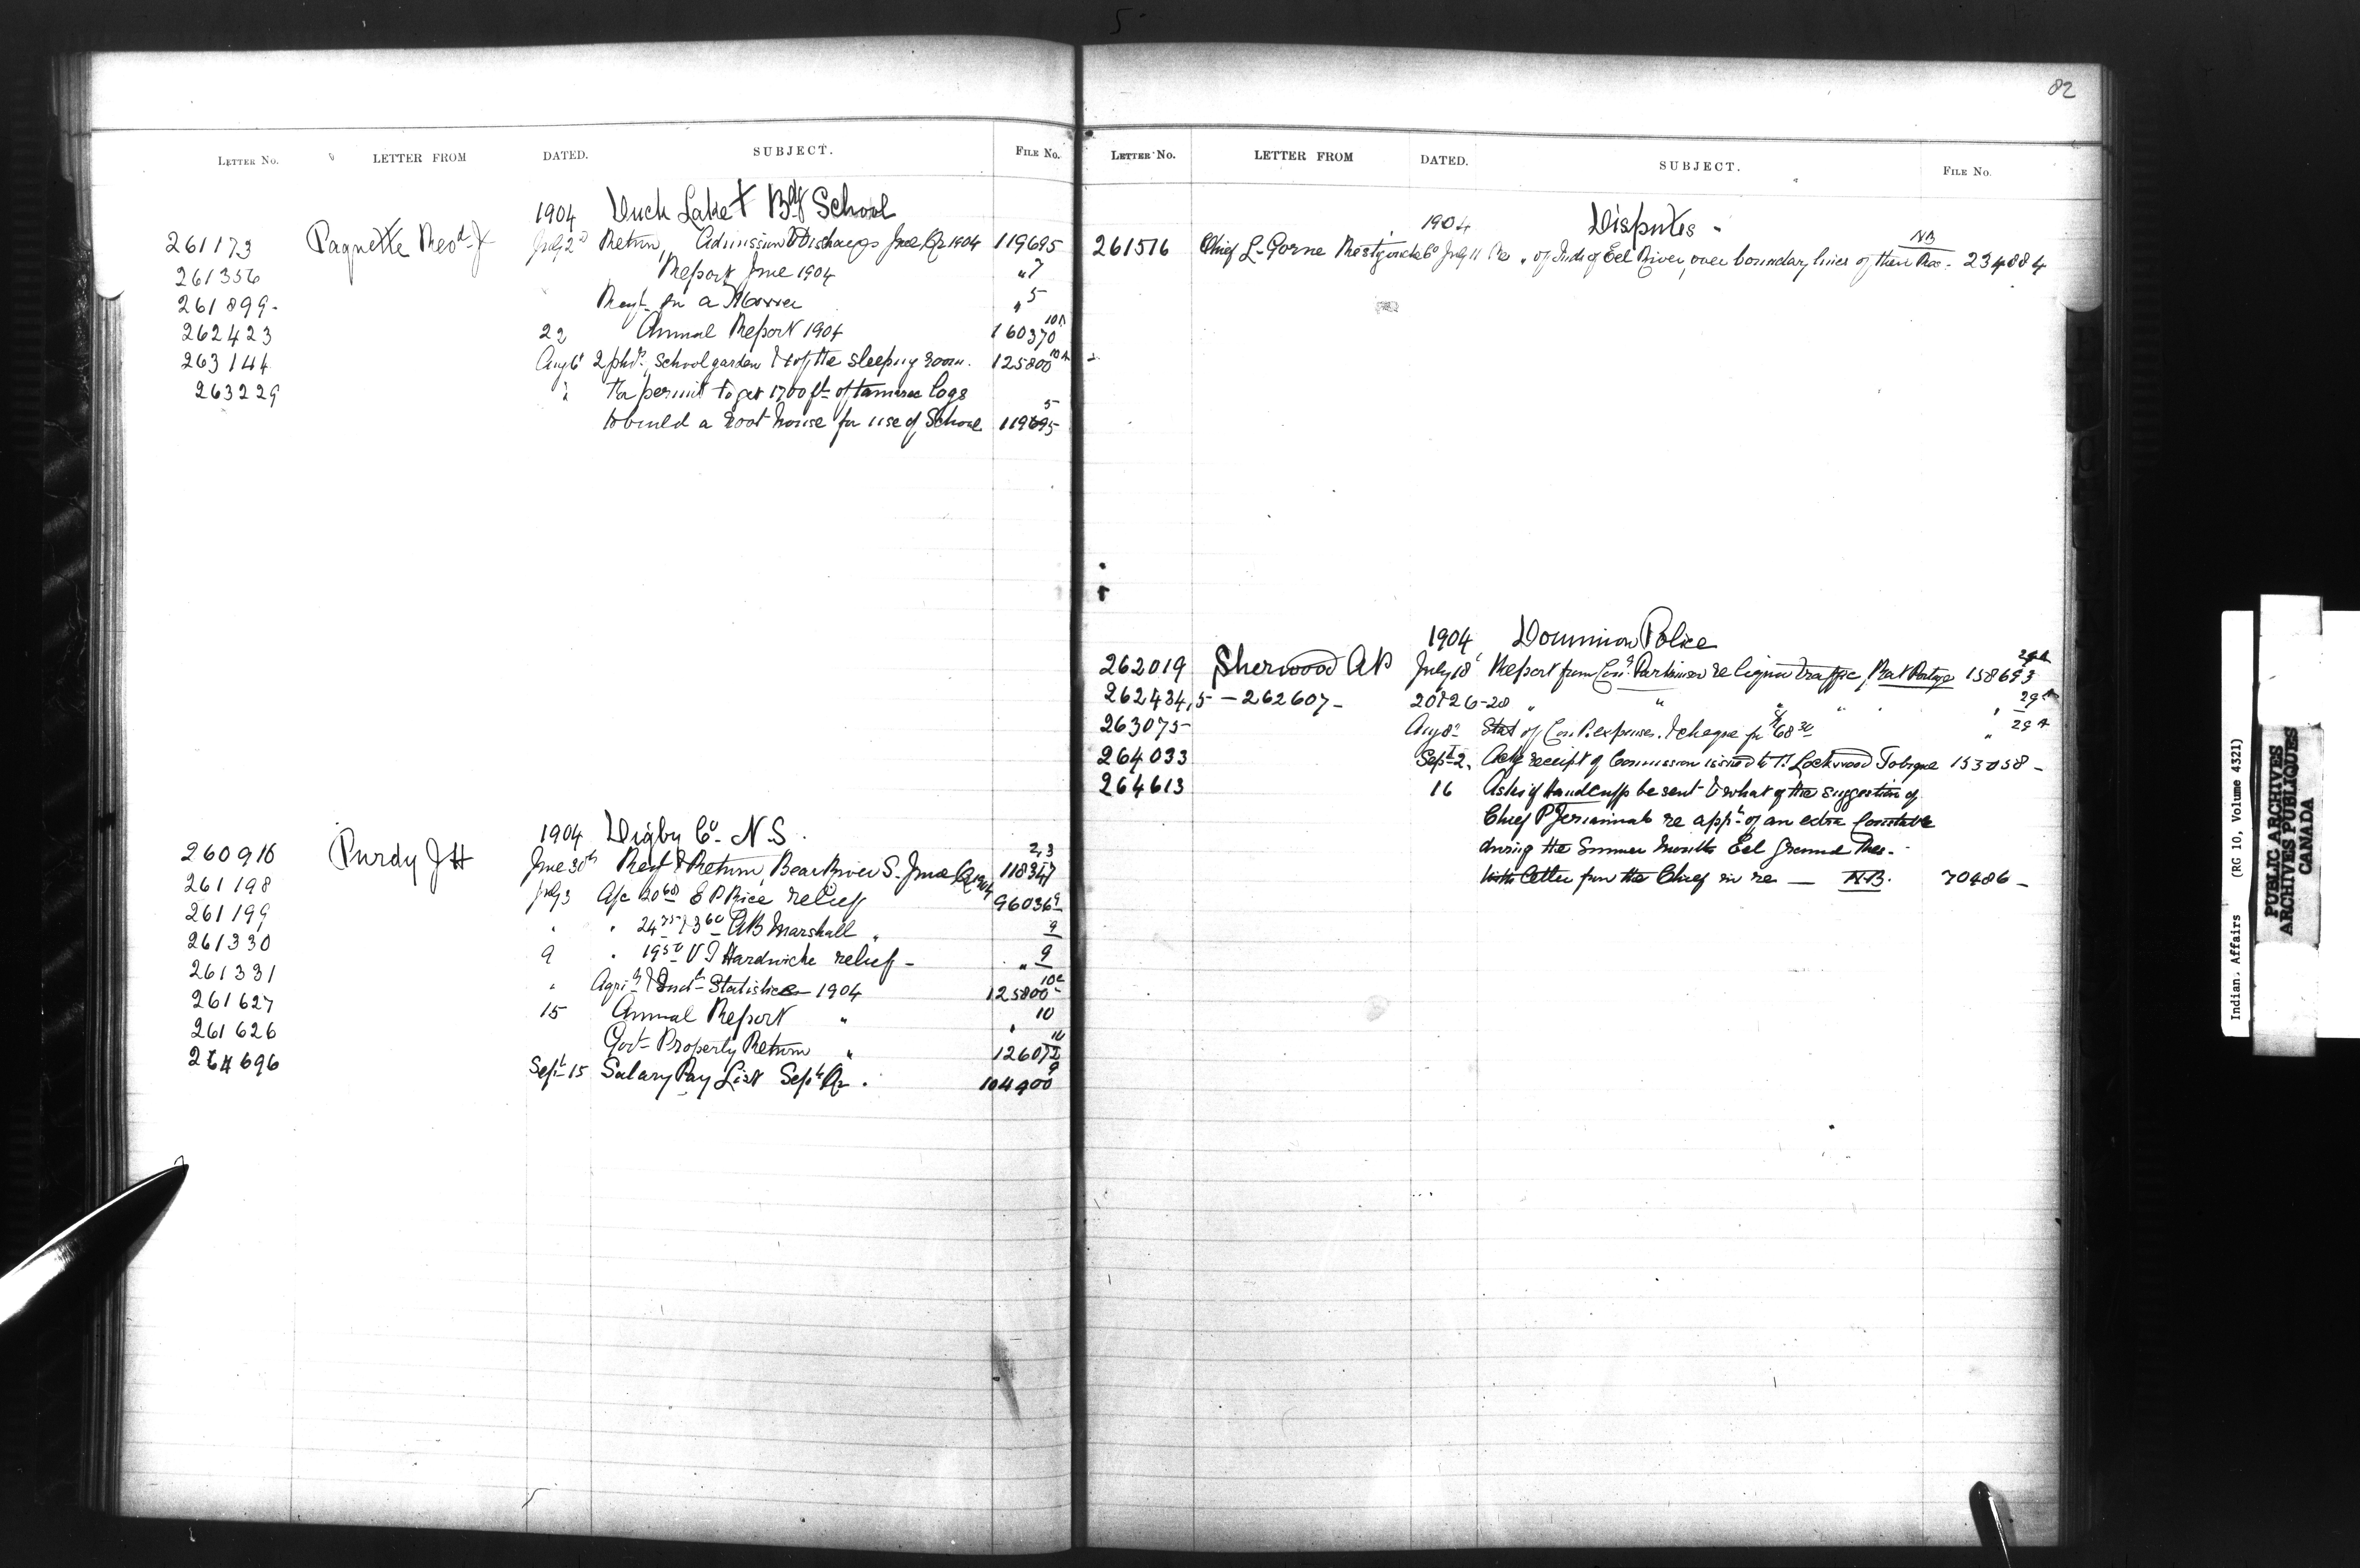 82
LETTER No. LETTER FROM DATED. SUBJECT. FILE No.
1904 Duck Lake Bdg School
261173 Paquette Revd J July 2d Return, Admission & Discharge June Qr 1904 119695
261356 Report June 1904 " 7
261899 - Reqt for a Mower " 5
262423 22 Annual Report 1904 160370 10A
263144 Aug 6t 2 phs, school garden & of the sleeping room. 125800 10A
263229 " For permit to get 1700 ft of tamarac logs
to build a root house for use of School 119695 5
1904 Digby Co. N.S.
260916 Purdy J H June 30th Rept & Return, Bear River S. June Qr 1904 118347 2,3
261198 July 3 A/c 20 68 E P Rice relief 96036 9
261199 " " 24 75 & 3 60 A B Marshall " 9
261330 9 " 19 50 V J Hardwicke relief - " 9
261331 " Agril & Indl Statistics 1904 125800 10c
261627 15 Annual Report " " 10
261626 Govt Property Return " 126072 10
264696 Sept 15 Salary Pay List Sept Qr. 104400 9
LETTER No. LETTER FROM DATED. SUBJECT. FILE No.
1904 Disputes -
261516 Chief L. Gorne Restigouche Co July 11 Re " of Inds of Eel River, over boundary lines of their Res - NB 234884
1904 Dominion Police
262019 Sherwood A P July 18t Report from Con. Parkinson re liquor traffic, Rat Portage 158693 29A
262434,5 - 262607 - 20 & 26-28 " " " " " 29A
263075 Aug 8 Stat of Con. P. expenses. & cheque for 68 30 " 29A
264033 Sept 2. Ackg receipt of Commission issued to T. Lockwood Tobique 153058 -
264613 16 Asks if Handcuffs be sent & what of the suggestion of
Chief P Jeriamiah re appt of an extra Constable
during the Summer months Eel Ground Res. -
With letter from the Chief in re — N.B. 70486 -
Indian Affairs (RG 10, Volume 4321)
PUBLIC ARCHIVES
ARCHIVES PUBLIQUES
CANADA